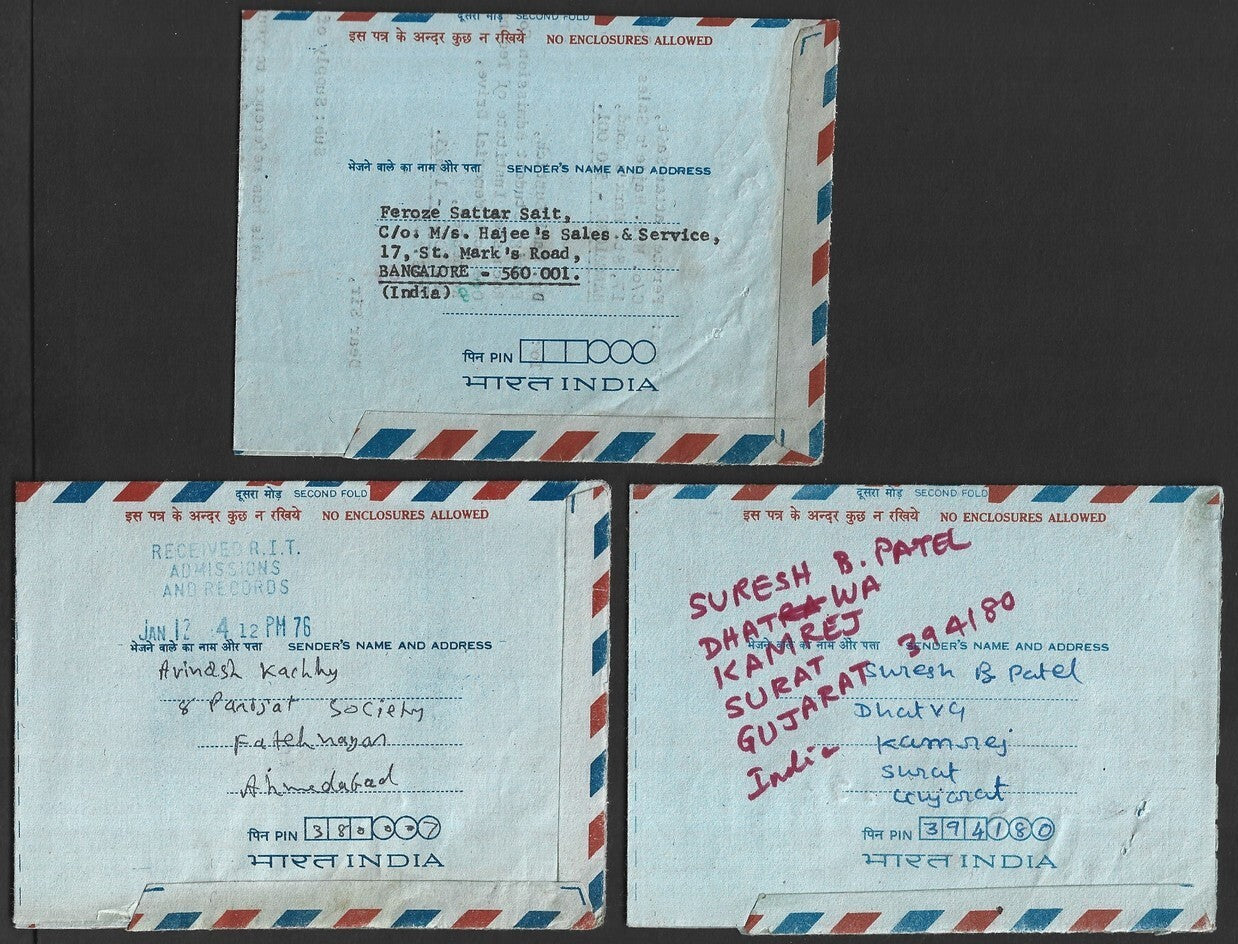 दूसरा मोड़ SECOND FOLD
इस पत्र के अन्दर कुछ न रखिये NO ENCLOSURES ALLOWED
भेजने वाले का नाम और पता SENDER'S NAME AND ADDRESS
Feroze Sattar Sait,
C/o: M/s. Hajee's Sales & Service,
17, St. Mark's Road,
BANGALORE - 560 001.
(India)
पिन PIN
भारत INDIA
दूसरा मोड़ SECOND FOLD
इस पत्र के अन्दर कुछ न रखिये NO ENCLOSURES ALLOWED
RECEIVED R.I.T.
ADMISSIONS
AND RECORDS
JAN 12 4 12 PM 76
भेजने वाले का नाम और पता SENDER'S NAME AND ADDRESS
Avinash Kachhy
8 Parijat Society
Fatehnagar
Ahmedabad
पिन PIN 380007
भारत INDIA
दूसरा मोड़ SECOND FOLD
इस पत्र के अन्दर कुछ न रखिये NO ENCLOSURES ALLOWED
SURESH B. PATEL
DHATRAWA
KAMREJ
SURAT 394180
GUJARAT
India
भेजने वाले का नाम और पता SENDER'S NAME AND ADDRESS
Suresh B Patel
Dhatva
Kamrej
Surat
Gujarat
पिन PIN 394180
भारत INDIA